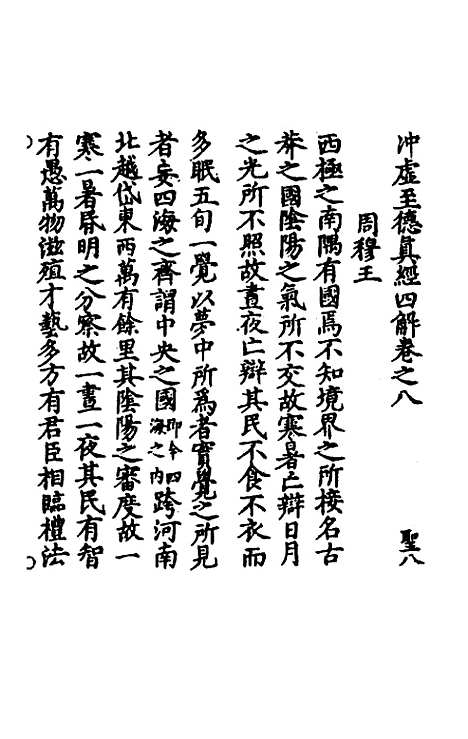 冲虛至德眞經四解卷之八 聖八
周穆王
西極之南隅有國焉不知境界之所接名古
莽之國陰陽之氣所不交故寒暑亡辯日月
之光所不照故晝夜亡辯其民不食不衣而
多眠五旬一覺以夢中所爲者實覺之所見
者妄四海之齊謂中央之國即今四海之內跨河南
北越岱東西萬有餘里其陰陽之審度故一
寒一暑昏明之分察故一晝一夜其民有智
有愚萬物滋殖才藝多方有君臣相臨禮法